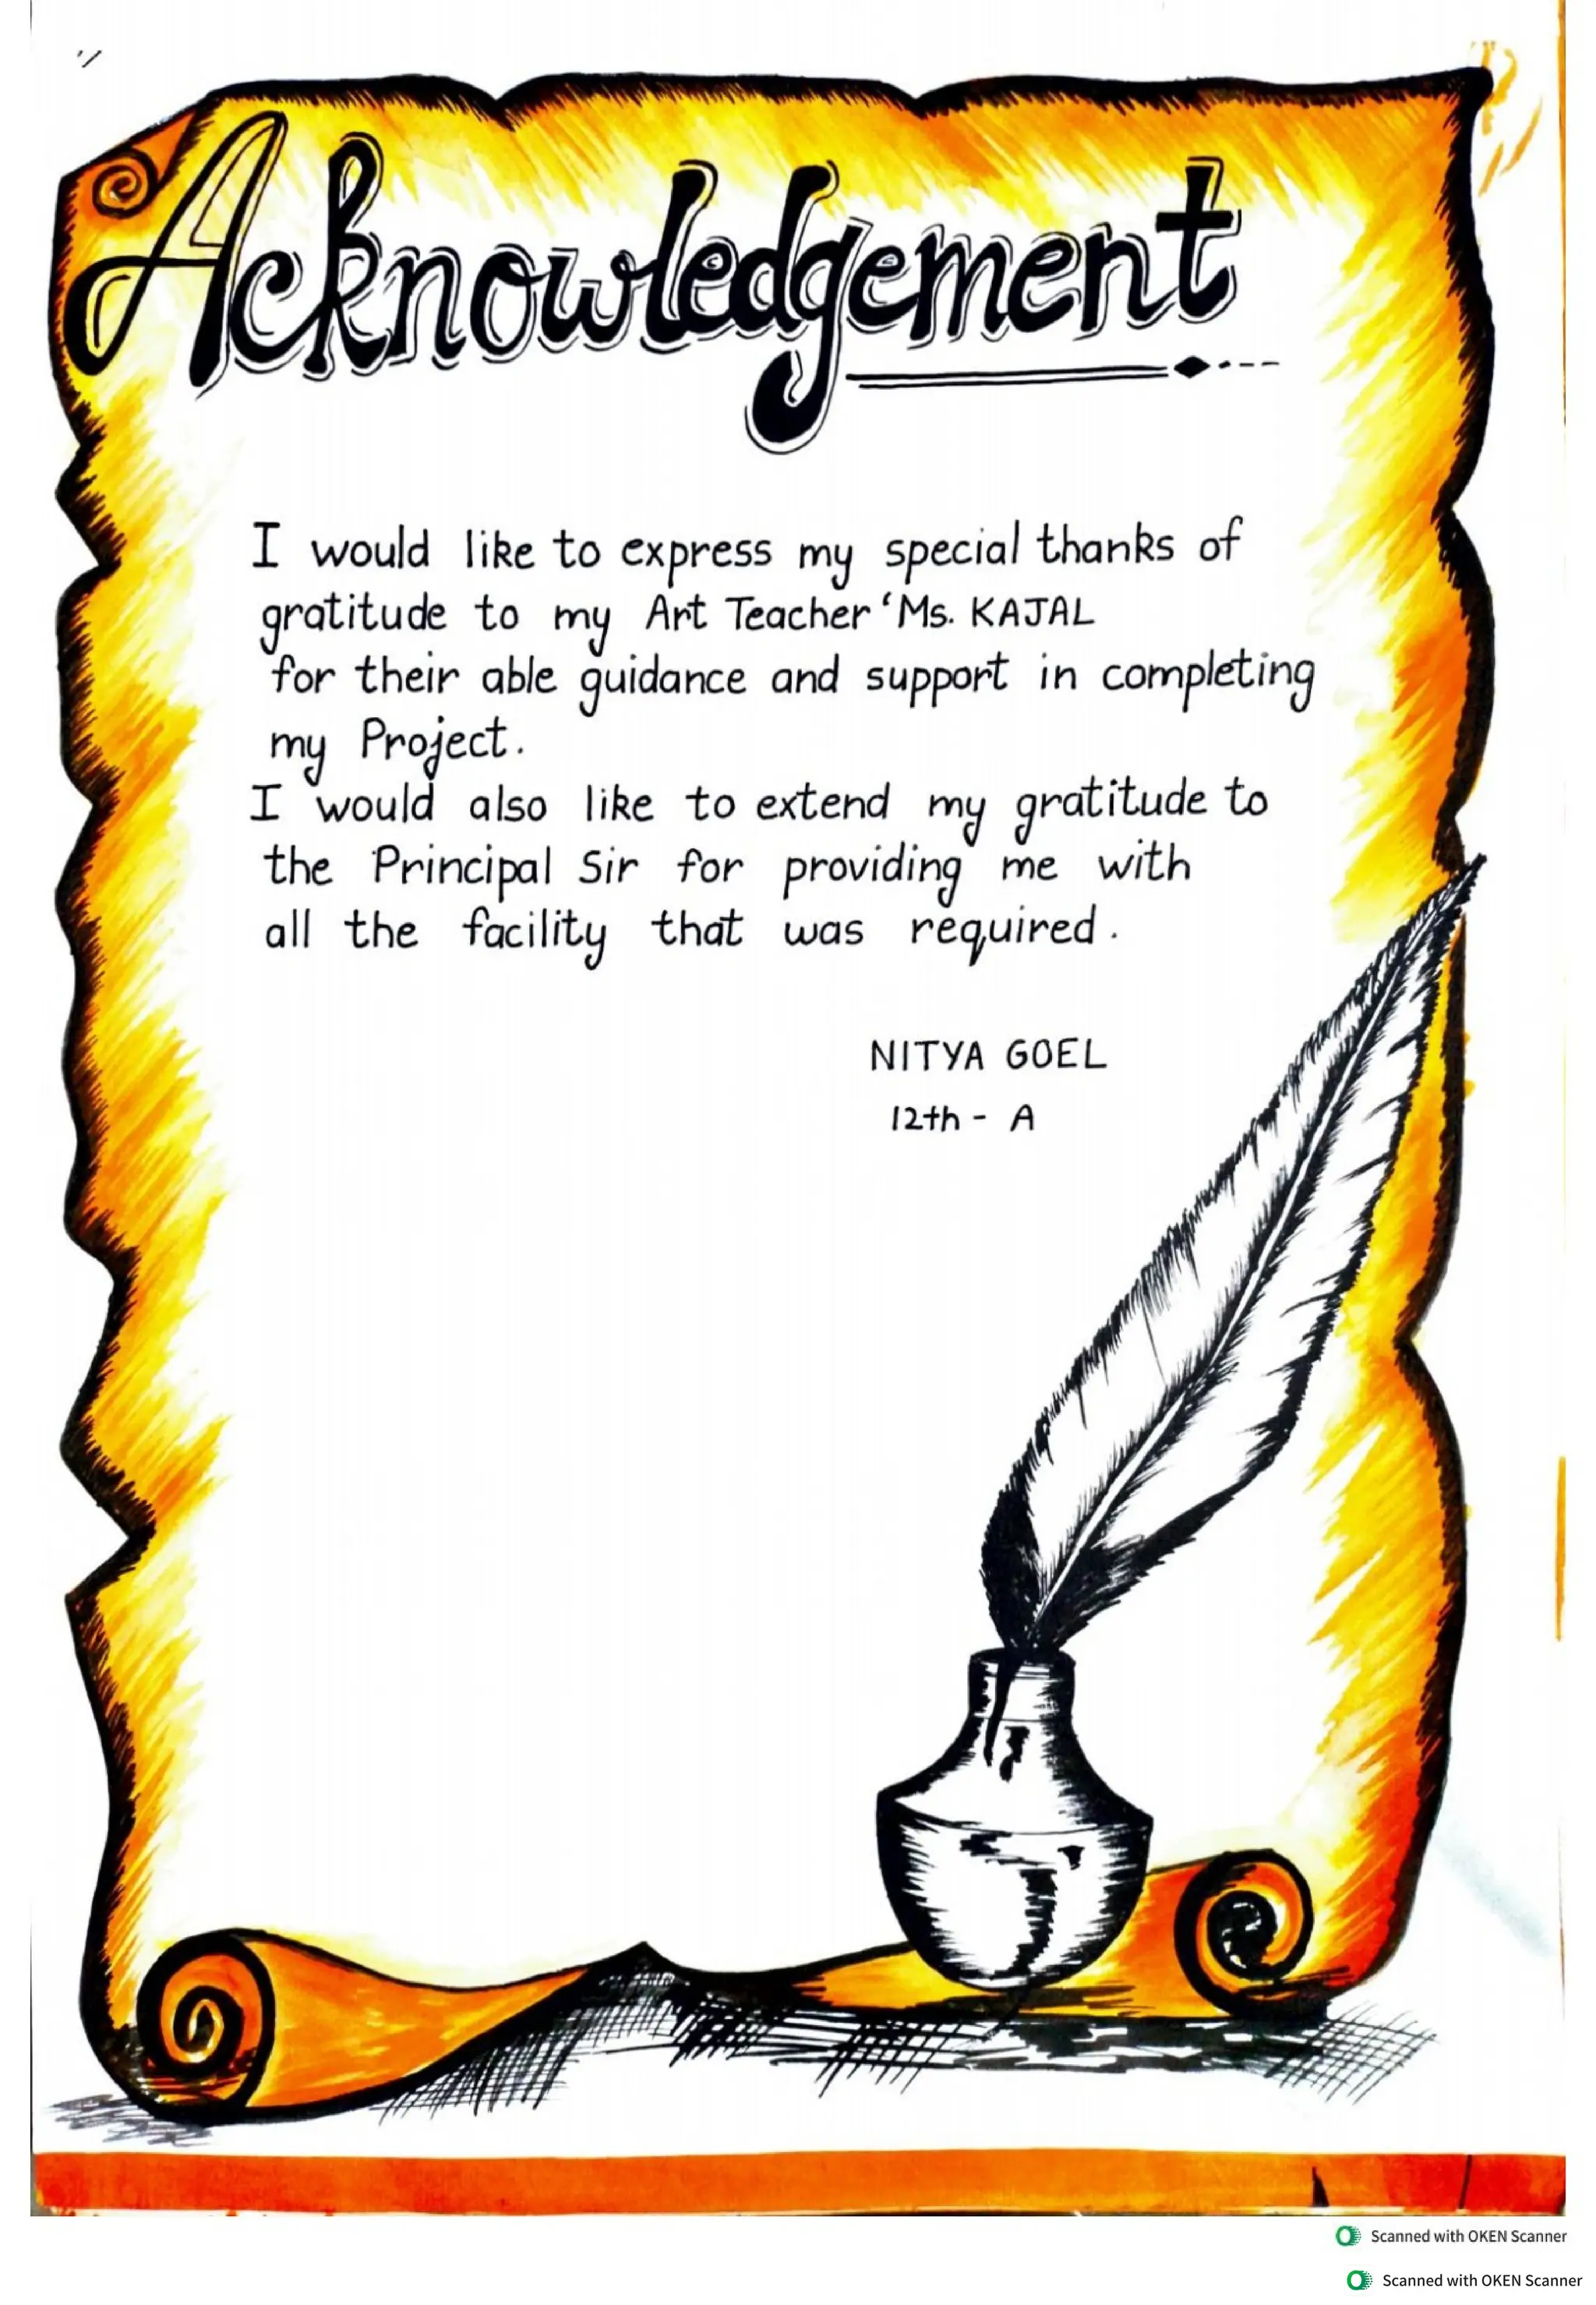 Acknowledgement
I would like to express my special thanks of
gratitude to my Art Teacher ‘Ms. KAJAL
for their able guidance and support in completing
my Project.
I would also like to extend my gratitude to
the Principal Sir for providing me with
all the facility that was required.
NITYA GOEL
12th - A
Scanned with OKEN Scanner
Scanned with OKEN Scanner